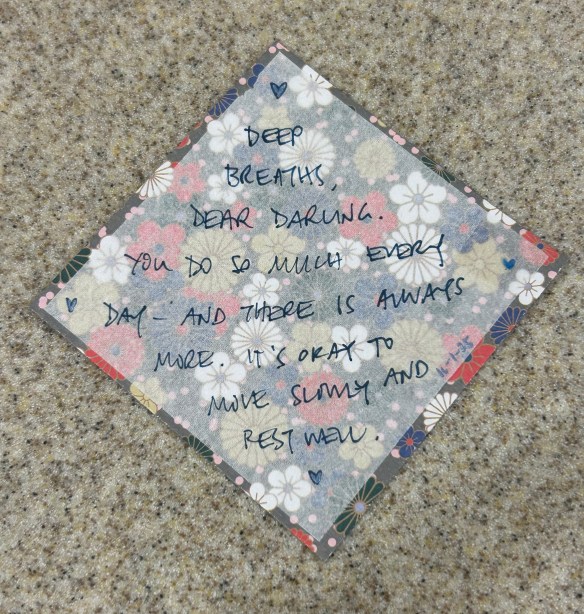 DEEP
BREATHS,
DEAR DARLING.
YOU DO SO MUCH EVERY
DAY – AND THERE IS ALWAYS
MORE. IT'S OKAY TO
MOVE SLOWLY AND
REST WELL.